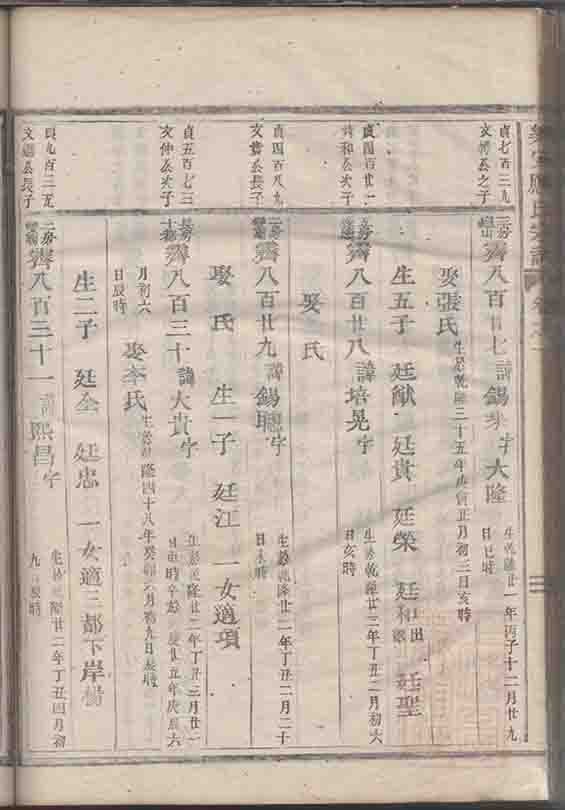 貞七百三九
文 公之子
三房 霽八百廿七諱錫 字大隆
生 乾隆廿一年丙子十二月廿九
日巳時
娶張氏
生於乾隆三十五年庚寅正月初三日亥時
生五子 廷猷 廷貴 廷榮 廷和 出 廷聖
貞四百廿一
和公次子
霽八百廿八諱培晃字
生於乾隆廿三年丁丑二月初六
日亥時
娶 氏
貞四百八九
文 公長子
二房 霽八百廿九諱錫聰字
生於乾隆廿一年丁丑二月二十
日未時
娶 氏 生一子 廷江 一女適項
貞五百七三
文仲公次子
房 霽八百三十諱大貴字
生於乾隆廿二年丁丑三月廿一
日 時卒於 廿五年庚辰六
月初六
日辰時
娶李氏
生於 隆四十八年癸卯六月初九日辰時
生二子 廷全 廷忠 一女適三都下岸楊
貞九百二五
文 公長子
二房 霽八百三十一諱熙昌字
生於 隆廿二年丁丑四月初
九 時